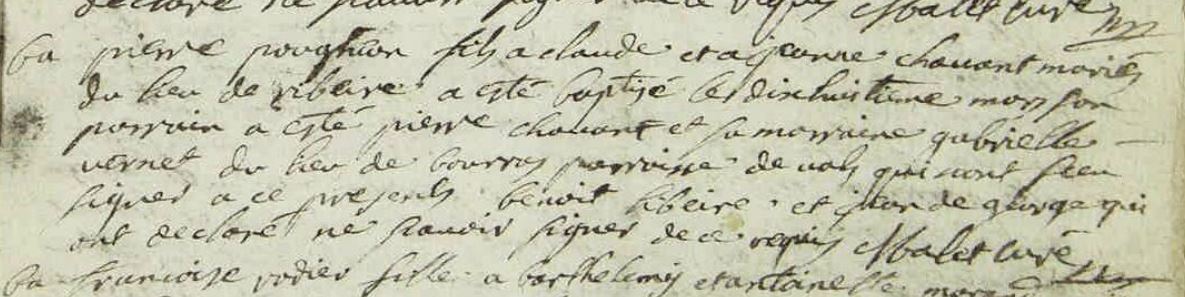 declaré ne scavoir signer de ce requis Malet curé
ba pierre poughon fils a claude et a jeanne chauant mariés
du lieu de ribeire a esté baptisé le dixhuitieme mars son
parrain a esté pierre chauant et sa marraine gabrielle
vernet du lieu de parroisse de vals qui nont sceu
signer a ce presents benoit libeire et jean de george qui
ont declaré ne scavoir signer de ce requis Malet curé
ba francoise rodier fille a barthelemy et antoinette